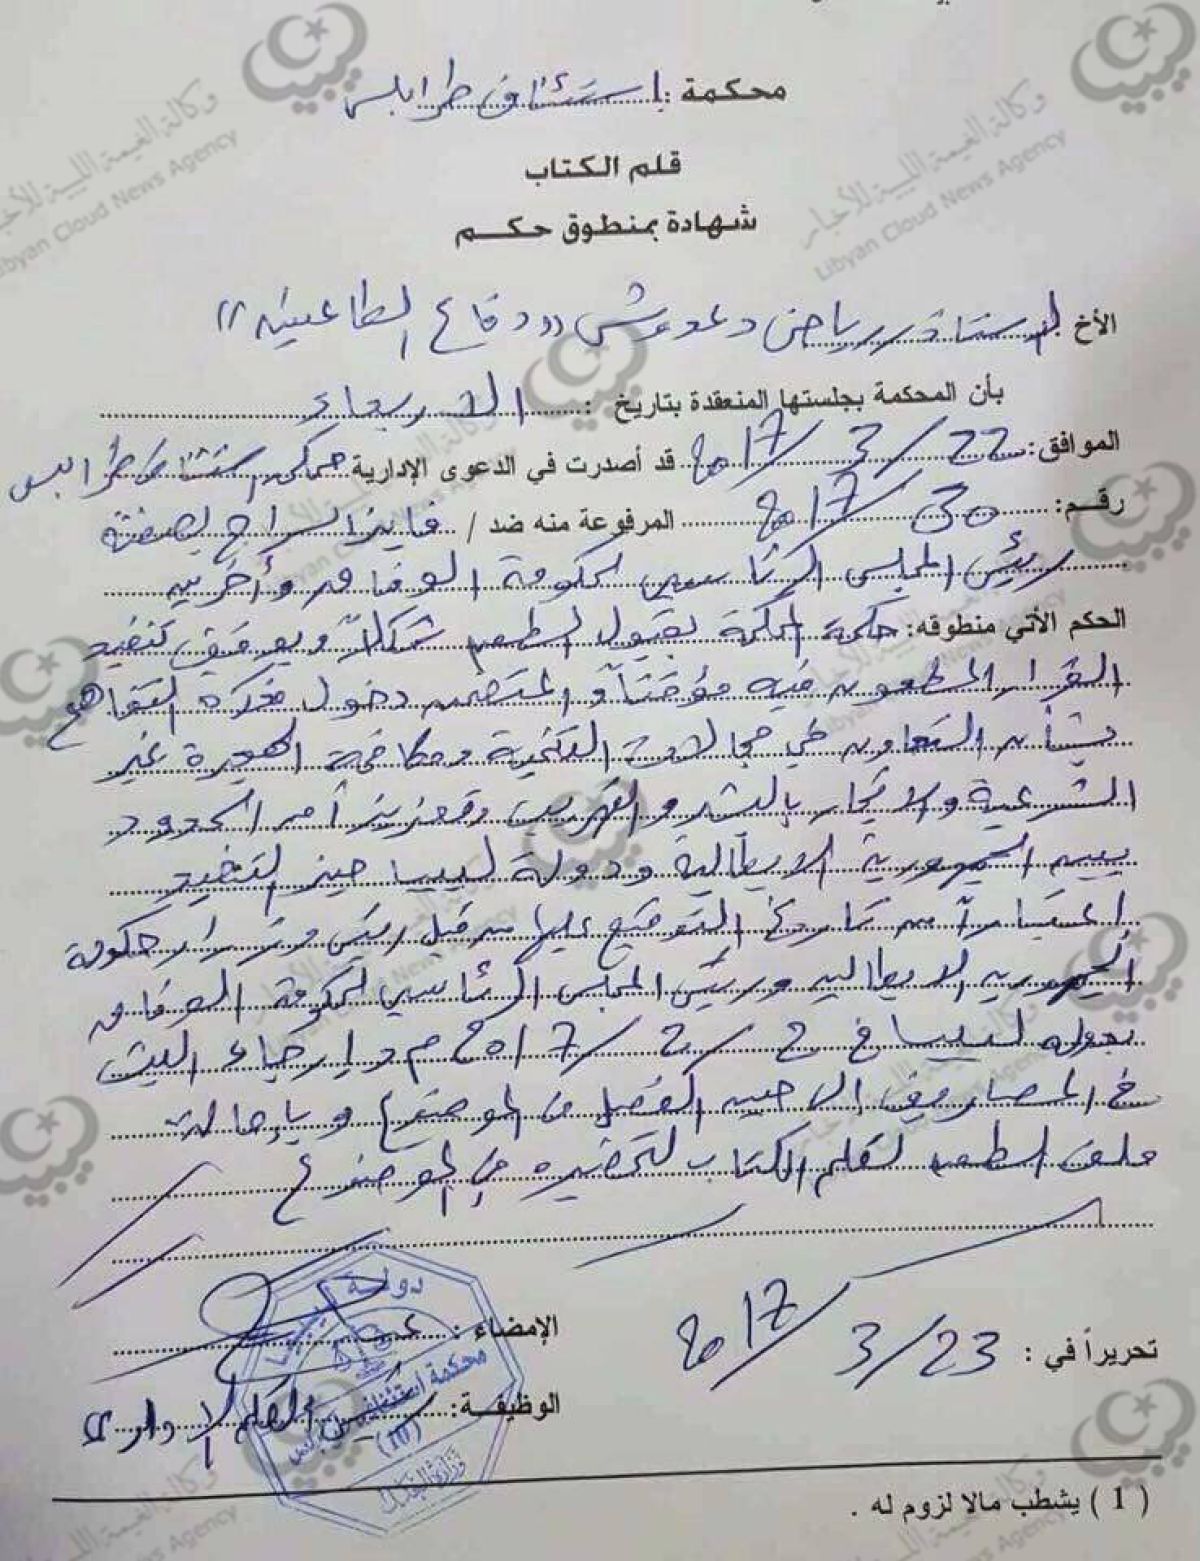 محكمة : إستئناف طرابلس
قلم الكتاب
شهادة بمنطوق حكم
الأخ الأستاذ رياض دغدوش ((دفاع الطاعنين))
بأن المحكمة بجلستها المنعقدة بتاريخ : الاربعاء
الموافق: 22 / 3 / 2017 قد أصدرت في الدعوى الإدارية محكمة استئناف طرابلس
رقم: 30 / 2017 المرفوعة منه ضد / فايز السراج بصفته
رئيس المجلس الرئاسي لحكومة الوفاق وأخرين
الحكم الأتي منطوقه: حكمة المحكمة بقبول الطعن شكلاً وبوقف تنفيد
القرار المطعون فيه مؤقتاً والمتضمن دخول مذكرة التفاهم
بشأن التعاون في مجالات التنمية ومكافحة الهجرة غير
الشرعية والاتجار بالبشر والتهريب وتعزيز أمن الحدود
بين الجمهورية الايطالية ودولة ليبيا حيز التنفيد
اعتباراً من تاريخ التوقيع عليها من قبل رئيس وزراء حكومة
الجمهورية الايطالية ورئيس المجلس الرئاسي لحكومة الوفاق
بدولة ليبيا في 2 / 2 / 2017 م وإرجاء البث
في المصاريف إلى حين الفصل في الموضوع وبإحالة
ملف الطعن لقلم الكتاب لتحضيره في الموضوع
تحريراً في : 23 / 3 / 2017
الإمضاء :
الوظيفة: القلم الإداري
دولة ليبيا
محكمة استئناف طرابلس
(10)
وزارة العدل
( 1 ) يشطب مالا لزوم له .
وكالة الغيمة الليبية للأخبار
Libyan Cloud News Agency